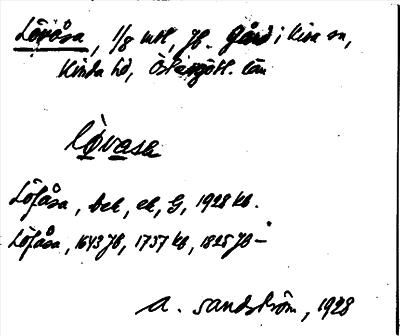 Lövåsa, 1/8 mtl, Jb. Gård i Kisa sn,
Kinda hd, Östergötl. län
lo̱vasa
Löfåsa, bek, ek, G, 1928 kb.
Löfåsa, 1643 Jb, 1757 kb, 1825 Jb —
A. Sandström, 1928